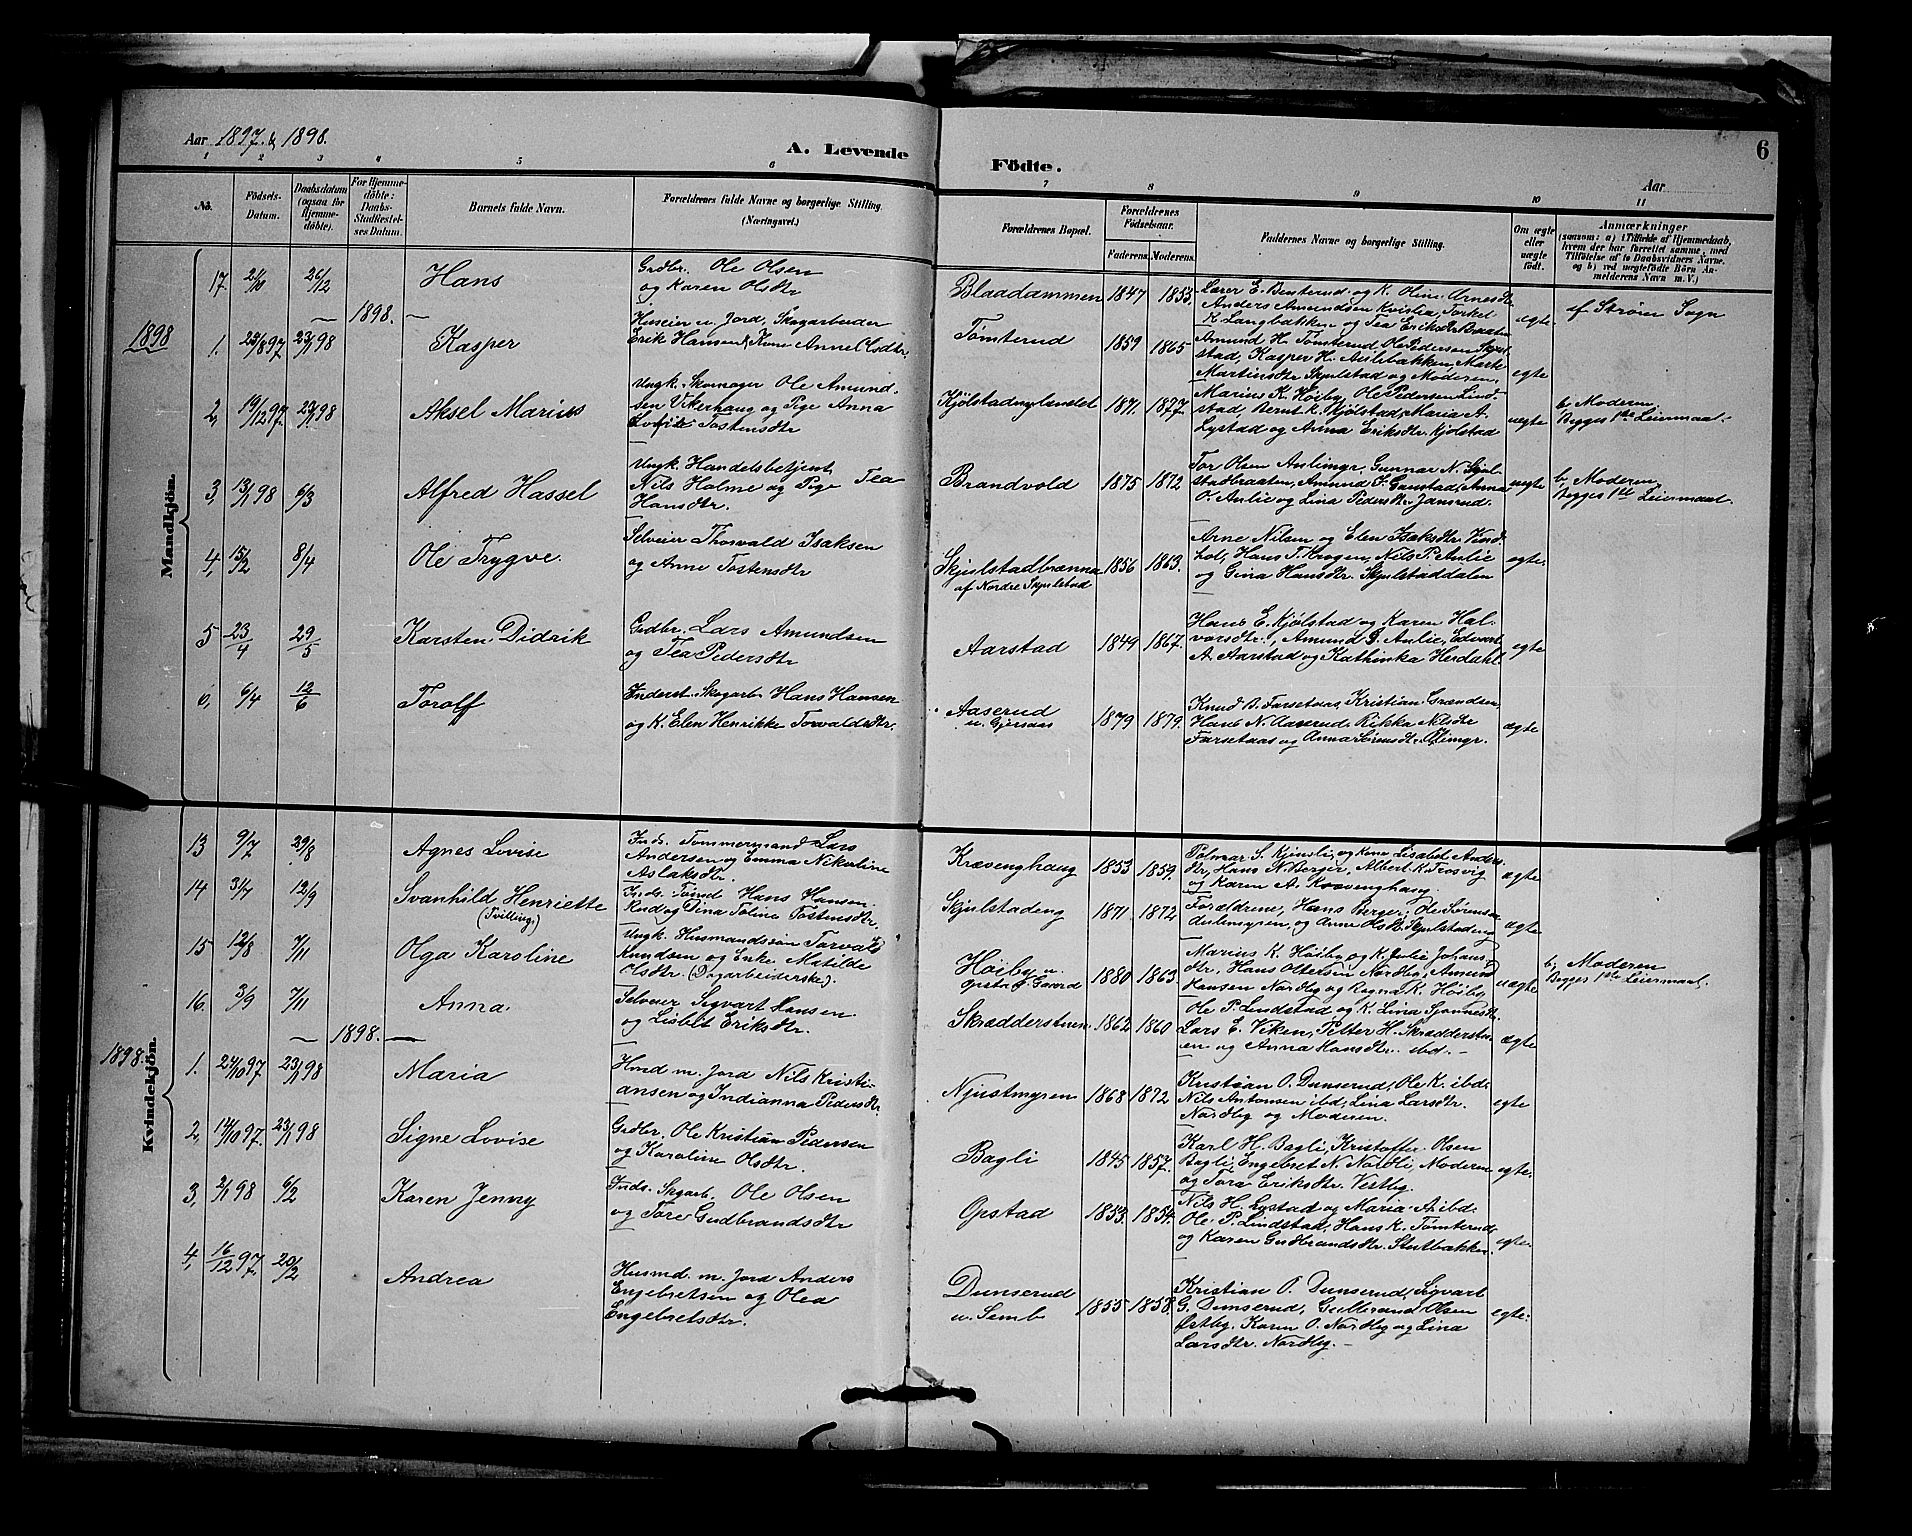 Aar 1897 & 1898.
A. Levende
Födte.
6
Aar
1 2 3 4 5 6 7 8 9 10 11
No.
Födsels-Datum.
Daabsdatum (ogsaa for Hjemmedöbte).
For Hjemmedöbte: Daabs-Stadfæstelses Datum.
Barnets fulde Navn.
Forældrenes fulde Navne og borgerlige Stilling. (Næringsvei.)
Forældrenes Bopæl.
Forældrenes Födselsaar.
Faderens. Moderens.
Faddernes Navne og borgerlige Stilling.
Om ægte eller uægte födt.
Anmærkninger
(saasom: a) i Tilfælde af Hjemmedaab, hvem der har forrettet samme, med Tilföielse af to Daabsvidners Navne, og b) ved uægtefödte Börn Anmelderens Navn m. V.)
Mandkjön.
17. 21/10 26/12 Hans
Grdbr. Ole Olsen
og Karen Olsdtr
Blaadammen 1847 1853.
Anders Amundsen Kvislia, Torkel
K. Langbakken og Tea Eriksdtr Braaten
egte
af Strøm Sogn
— 1898. —
1898
1. 25/8 97 23/1 98 Kasper
Huseier u. Jord, Skogarbeider
Erik Hansen & Kone Anne Olsdtr.
Tømterud 1859 1865
Amund H. Tømterud, Ole Pedersen Skjul-
stad, Kasper H. Auliebakken, Marte
Martinsdtr Skjulstad og Moderen.
egte
2, 19/12 97. 23/1 98 Aksel Marius
Ungk. Skomager Ole Amund-
sen Vikerhaug og Pige Anna
Lovise Tostensdtr
Kjølstadnylændet 1871. 1877.
Marius K. Høiby, Ole Pedersen Lind-
stad, Bernt K. Kjølstad, Maria A.
Lystad og Anna Eriksdtr Kjølstad
uegte
b, Moderen,
Begges 1ste Leiermaal.
3, 13/1 98 6/3 Alfred Hassel
Ungk. Handelsbetjent
Nils Holme og Pige Tea
Hansdtr.
Brandvold 1875 1872
Tor Olsen Aulimyr, Gunnar N. Skjul-
stadbraaten, Amund K. Gaustad, Anna
O. Aulie og Lina Pedersdtr Jansrud.
uegte
b, Moderen,
Begges 1ste Leiermaal.
4, 15/2 8/4 Ole Trygve.
Selveier Thorvald Isaksen
og Anne Tostensdtr
Skjulstadbrænna
af Nordre Skjulstad
1856 1863.
Arne Nilsen og Elen Isaksdtr Vind-
hol, Hans T. Krogen, Nils P. Aulie
og Gina Hansdtr. Skjulstaddalen
egte.
5 23/4 29/5 Karsten Didrik
Grdbr. Lars Amundsen
og Tea Pedersdtr
Aarstad 1849 1867.
Hans E. Kjølstad og Karen Hal-
vorsdtr., Amund G. Aulie, Edvart
A. Aarstad og Kathinka Herdahl.
egte
6, 6/4 12/6 Torolf
Inderst. Skogarb. Hans Hansen
og K. Elen Henrikke Torvaldsdtr.
Aaserud
u. Gjersaas
1879 1879.
Knud B. Farsetaas, Kristian Grønden,
Hans N. Aaserud, Rikka Nilsdtr
Farsetaas og Anna Sørensdtr. Olimyr.
ægte
Kvindekjön.
13 9/7 29/8 Agnes Lovise
Inds. Tømmermand Lars
Andersen og Emma Nikoline
Aslaksdtr.
Krævenghaug 1853 1859.
Tolmar S. Kjensli, og Kone Lisabet Anders-
dtr, Hans N. Berger, Albert K. Trosvig
og Karen A. Krævenghaug.
ægte
14 31/7 12/9 Svanhild Henriette
(Tvilling)
Inds. Tømd Hans Hansen
Rud og Dina Toline Tostensdtr.
Skjulstadeng 1871. 1872
Forældrene, Hans Berger, Ole Sørensen
Aulimyren, og Anne Olsdtr. Skjulstadeng
ægte
15 12/8 7/11 Olga Karoline
Ungk. Husmandssøn Torvald
Knudsen og Enke Matilde
Olsdtr. (Dagarbeiderske).
Høiby u.
Opstad
1880 1863
Marius K. Høiby og K. Julie Johans-
dtr, Hans Ottersen Nordby, Amund
Hansen Nordby og Ragna K. Høiby
uægte
b, Moderen
Begges 1ste Leiermaal.
16. 3/9 7/11 Anna.
Selveier Sigvart Hansen
og Lisbet Eriksdtr.
Skrædderstuen 1862 1860
Ole P. Lindstad og K. Lina Sjønnesdtr.
Lars E. Viken, Petter H. Skrædderstu-
en og Anna Hansdtr. ibd. —
ægte
— 1898. —
1898.
1. 24/10 97 23/1 98 Maria
Hmd m. Jord Nils Kristi-
ansen og Indianna Pedersdtr.
Njustmyren 1868 1872
Kristian O. Dunserud, Ole K. ibd.
Nils Antonsen ibd, Lina Larsdtr.
Nordby og Moderen.
egte
2, 14/10 97. 23/1 98 Signe Lovise
Grdbr. Ole Kristian Pedersen
og Karoline Olsdtr.
Bagli 1845 1857.
Karl H. Bagli, Kristoffer Olsen
Bagli, Engebret N. Nordli, Moderen
og Tora Eriksdtr. Vestby.
egte.
3, 2/1 98 6/2 Karen Jenny
Inds. Skgarb. Ole Olsen
og Tore Gudbrandsdtr
Opstad 1853. 1854.
Nils H. Lystad og Maria A. ibd.
Ole P. Lindstad, Hans K. Tømterud
og Karen Gudbrandsdtr. Slutbakken
egte.
4, 16/12 97. 20/2 Andrea
Husmd. m. Jord Anders
Engebretsen og Olea
Engebretsdtr.
Dunserud
u. Semb
1855 1858.
Kristian O. Dunserud, Sigvart
G. Dunserud, Gulbrand Olsen
Østby, Karen O. Nordby og Lina
Larsdtr. Nordby. —
egte.